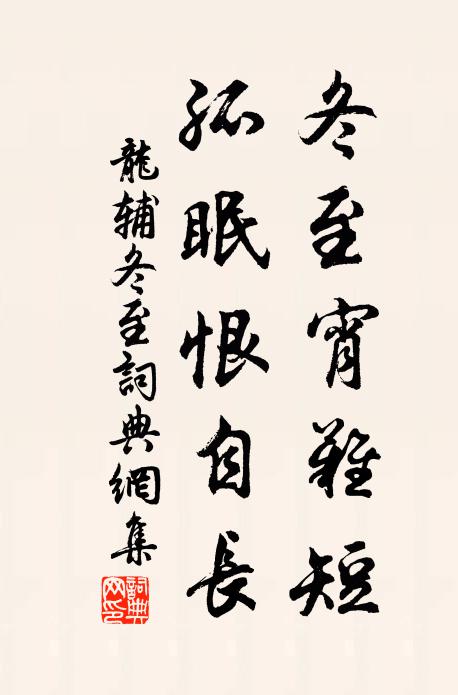 冬至宵難短
孤眠恨自長
龍辅冬至詞典網集
詞典网印